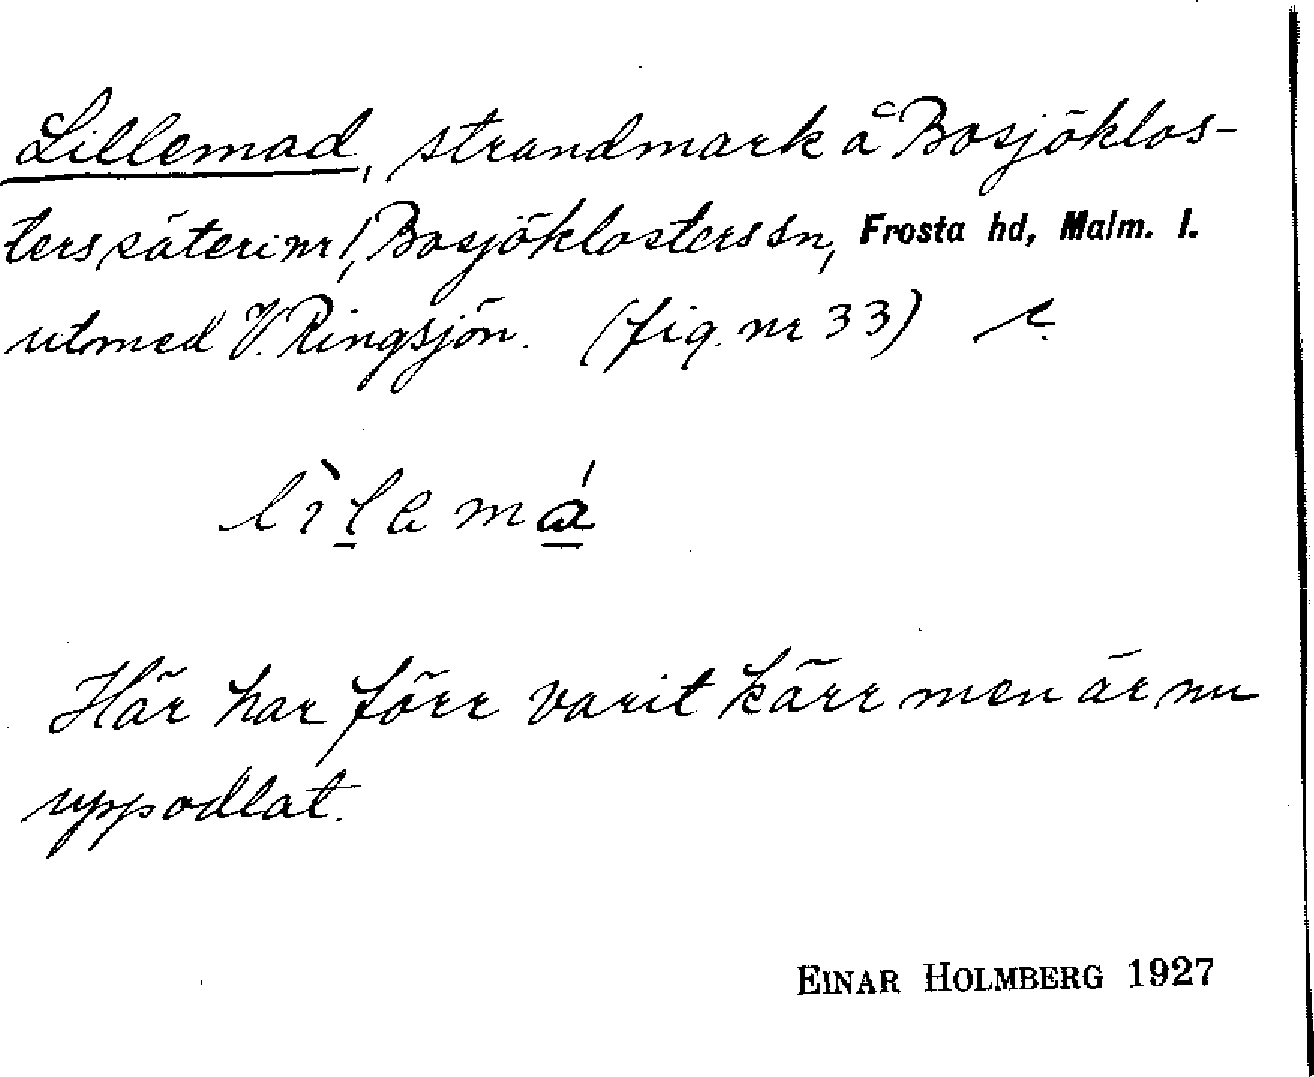 Lillemad, strandmark å Bosjöklos-
ters säteri nr 1, Bosjöklosters sn, Frosta hd, Malm. l.
utmed V. Ringsjön. (fig. nr 33)
Här har förr varit kärr men är nu
uppodlat.
EINAR HOLMBERG 1927